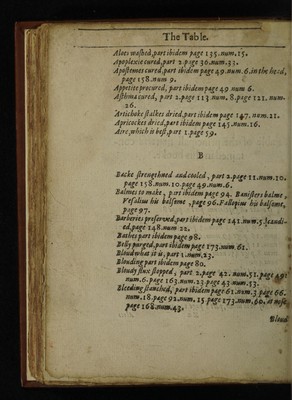 The Table.
Aloes washed, part ibidem page 135. num. 15.
Apoplexie cured, part 2. page 36. num. 33.
Apostemes cured, part ibidem page 49. num. 6. in the head,
page 158. num 9.
Appetite procured, part ibidem page 49 num 6.
Asthma cured, part 2. page 113 num. 8. page 121. num.
26.
Artichoke stalkes dried, part ibidem page 147. num. 21.
Apricockes dried, part ibidem page 145. num. 16.
Aire, which is best, part 1. page 59.
B
Backe strengthned and cooled, part 2. page 11. num. 10.
page 158. num. 10. page 49. num. 6.
Balmes to make, part ibidem page 94. Banisters balme,
Vesalius his balsome, page 96. Fallopius his balsome,
page 97.
Barberies preserved, part ibidem page 141. num. 5.
ed, page 148. num 22.
Bathes part ibidem page 98.
Belly purged, part ibidem page 173. num. 61.
Bloud what it is, part 1. num. 23.
Blouding part ibidem page 80.
Bloudy flux stopped, part 2. page 42. num. 51. page 49.
num. 6. page 163. num. 23. page 43. num. 53.
Bleeding stanched, part ibidem page 61. num. 3. page 66.
num. 18. page 92. num. 15 page 173. num. 60. at nose,
page 168. num. 43.
Bloud